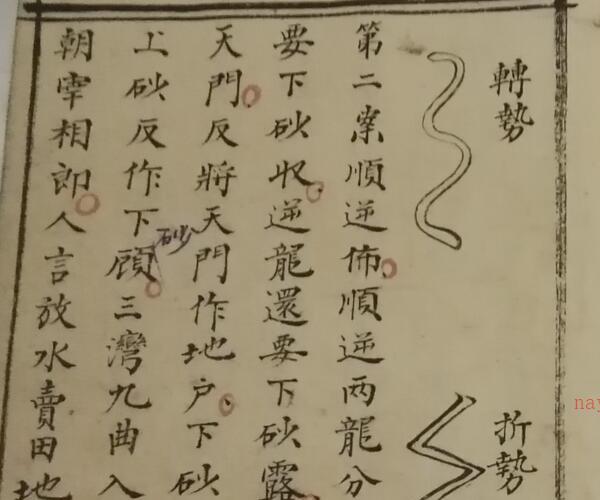 轉勢
折勢
第二案順逆佈順逆两龍分
要下砂収逆龍還要下砂露
天門反將天門作地户下砂
上砂反作下顧三灣九曲入
砂
朝宰相郎人言放水賣田地
nay